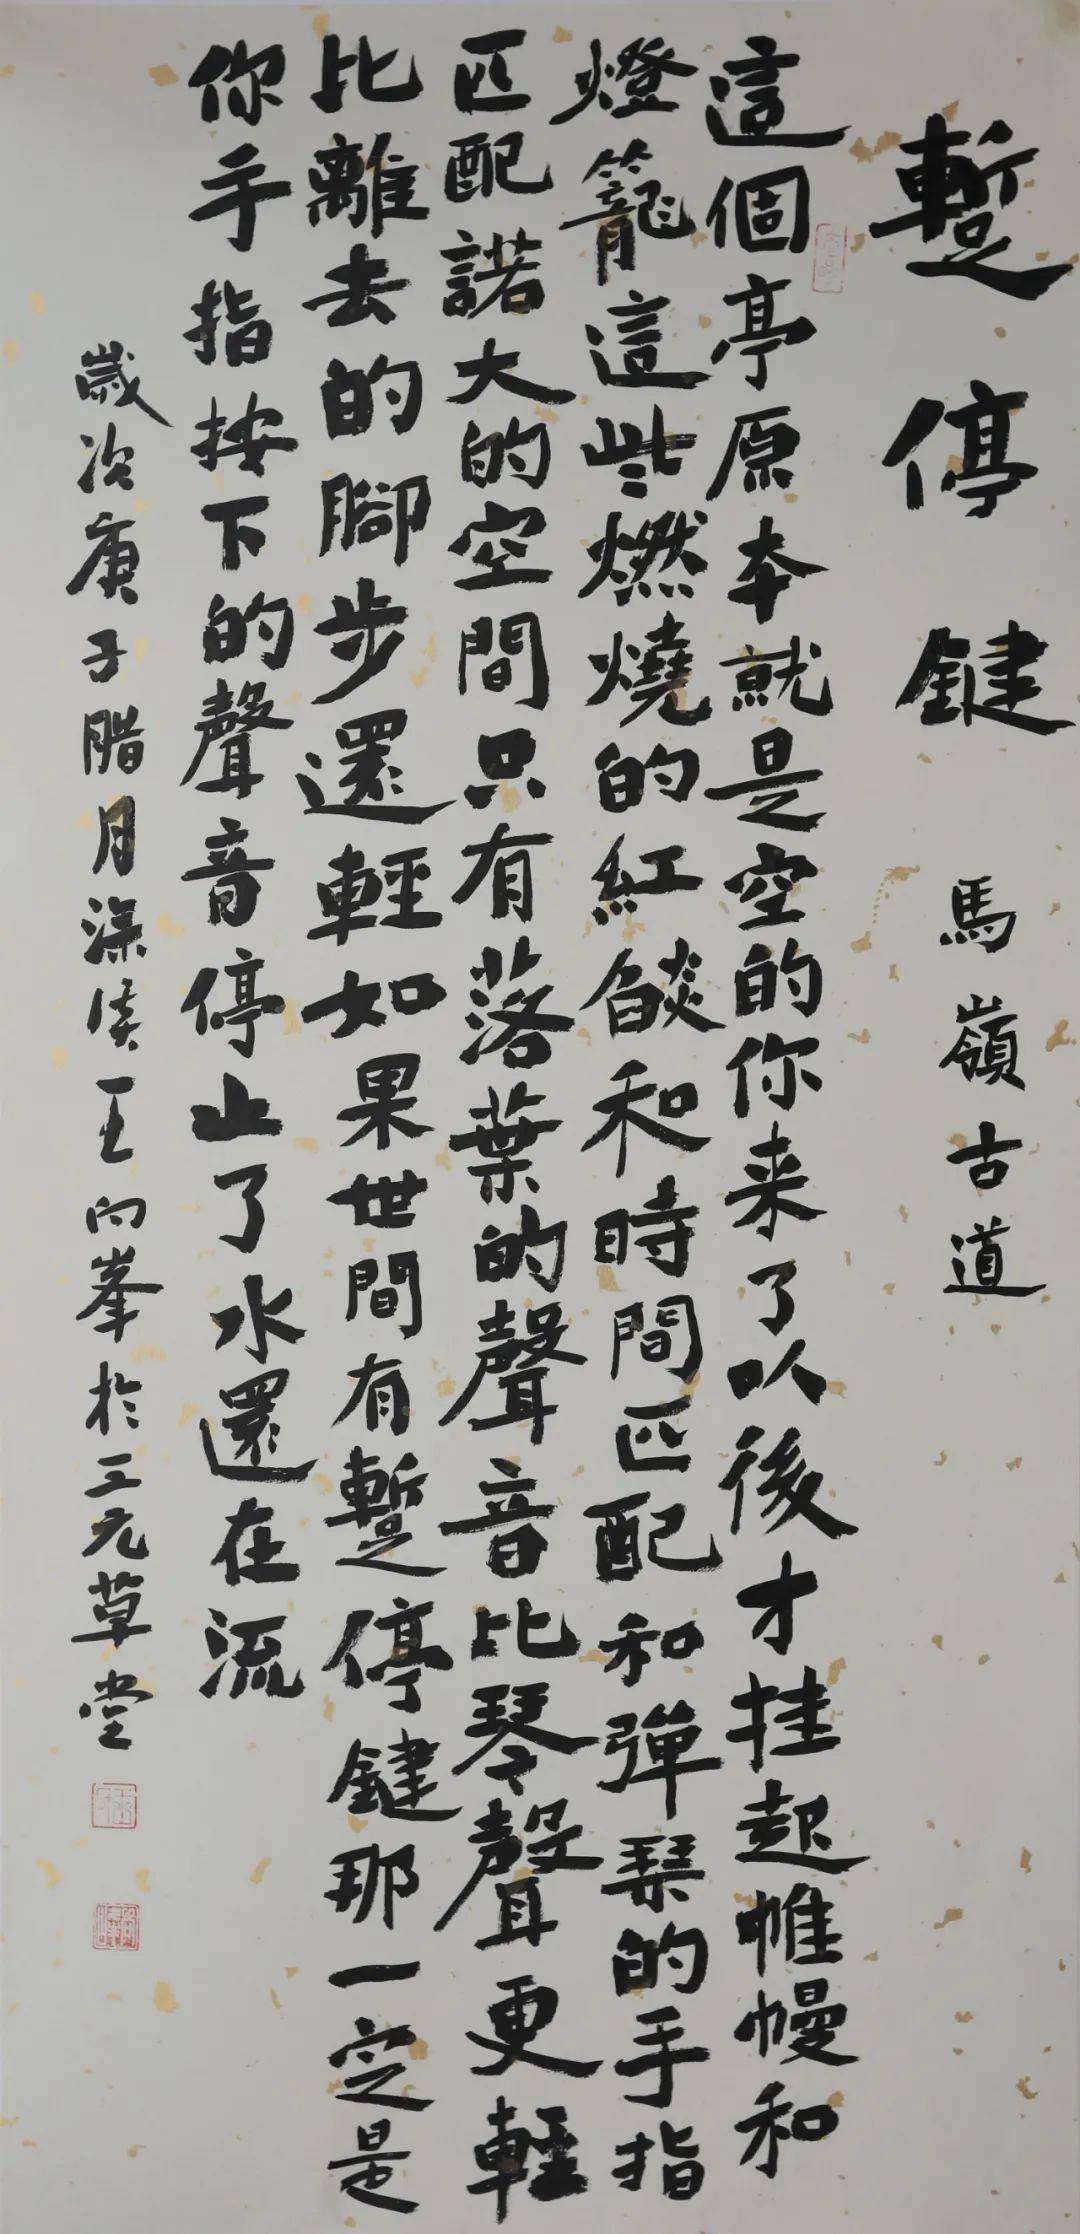 暫停鍵 馬嶺古道
這個亭原本就是空的你来了以後才挂起帷幔和
燈籠這些燃燒的紅燄和時間匹配和彈琹的手指
匹配諾大的空間只有落葉的聲音比琴聲更輕
比離去的腳步還輕如果世間有暫停鍵那一定是
你手指按下的聲音停止了水還在流
歲次庚子腊月深溪王向峯於三元草堂